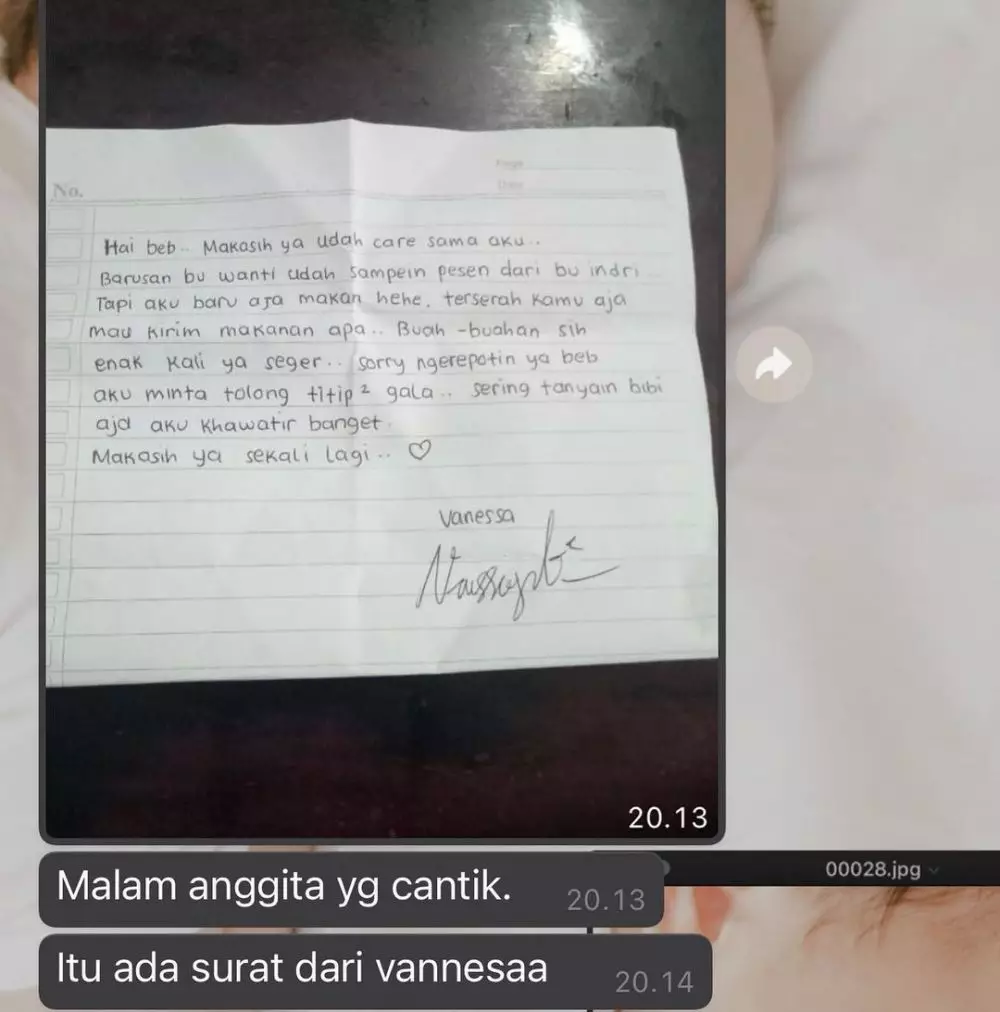 Page
Date
No.
Hai beb.. Makasih ya udah care sama aku..
Barusan bu wanti udah sampein pesen dari bu indri
Tapi aku baru aja makan hehe. terserah kamu aja
mau kirim makanan apa.. Buah-buahan sih
enak kali ya seger.. sorry ngerepotin ya beb
aku minta tolong titip² gala.. sering tanyain bibi
aja aku khawatir banget.
Makasih ya sekali lagi.. ♡
Vanessa
20.13
00028.jpg
Malam anggita yg cantik. 20.13
Itu ada surat dari vannesaa 20.14